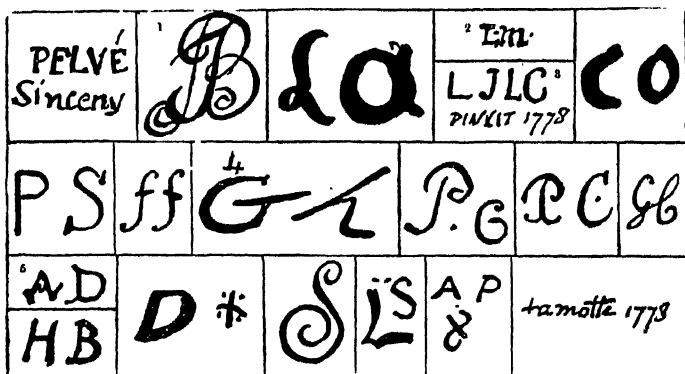 PELVÉ
Sinceny
1
B
La
2 I:m.
LJLC 3
PINXIT 1778
CO
PS
ff
4
G
P.G
P C
GB
5 AD
HB
D
S
LS
A P
Lamotte 1778